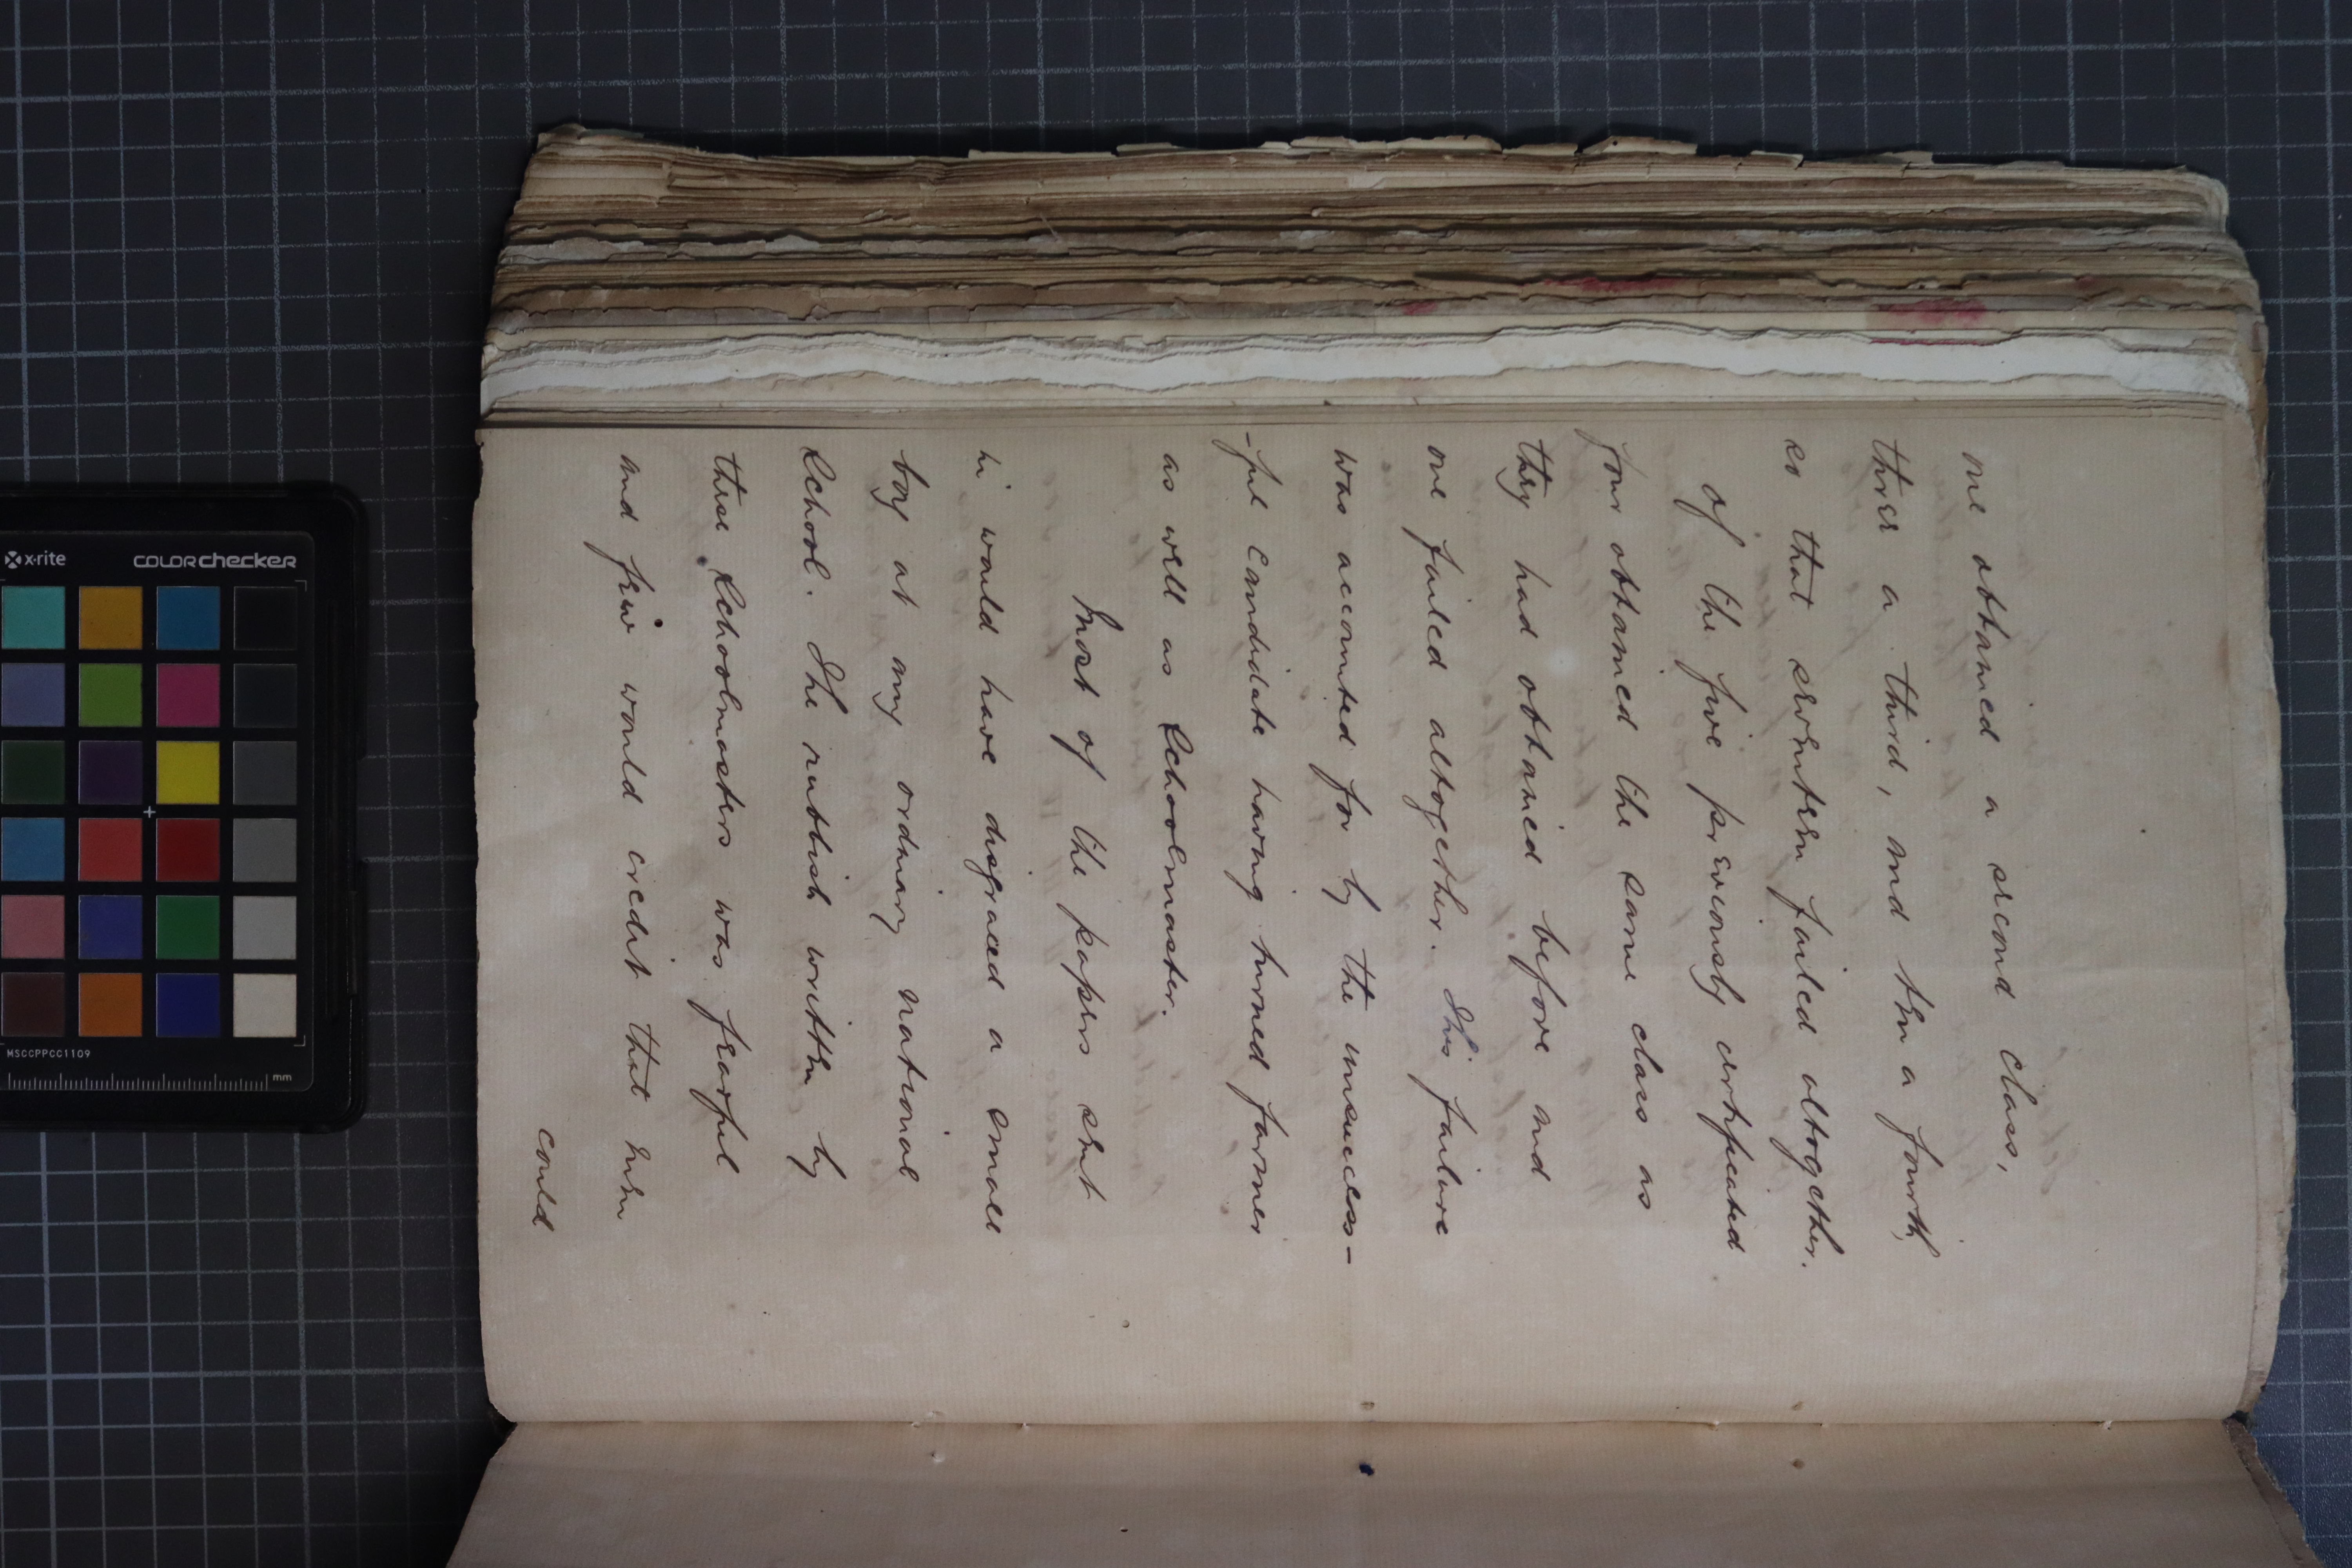 one obtained a second class,
three a third, and then a fourth,
so that seventeen failed altogether.
of the five previously certificated
four obtained the same class as
they had obtained before and
one failed altogether. This failure
was accounted for by the unsuccess-
-ful candidate having turned farmer
as well as Schoolmaster.
Most of the papers sent
in would have disgraced a small
boy at any ordinary national
School. The rubbish written by
these Schoolmasters was fearful
and few would credit that men
could
x·rite
COLORchecker
MSCCPPCC1109
mm